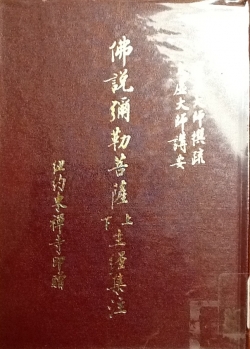 師撰疏
大師講要
佛說彌勒菩薩上下生經集注
紐約東禪寺印贈